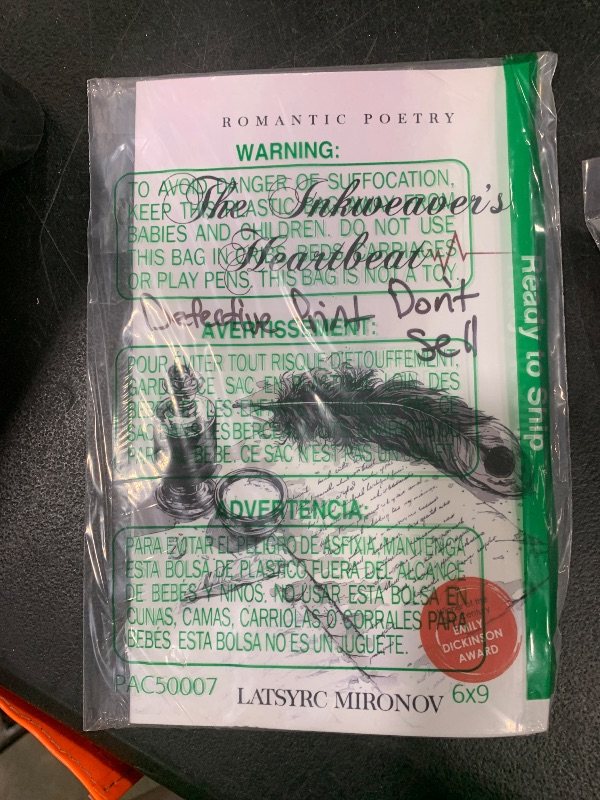 ROMANTIC POETRY
WARNING:
TO AVOID DANGER OF SUFFOCATION,
KEEP THIS PLASTIC
BABIES AND CHILDREN. DO NOT USE
THIS BAG IN CRIBS, BEDS, CARRIAGES
OR PLAY PENS. THIS BAG IS NOT A TOY.
The Inkweaver's
Heartbeat
Defective Print Don't
Sell
AVERTISSEMENT:
POUR ÉVITER TOUT RISQUE D'ÉTOUFFEMENT,
GARDER CE SAC EN LOIN DES
DES EN
SAC BERCE
BÉBÉ. CE SAC N'EST PAS UN
ADVERTENCIA:
PARA EVITAR EL PELIGRO DE ASFIXIA, MANTENGA
ESTA BOLSA DE PLASTICO FUERA DEL ALCANCE
DE BEBES Y NIÑOS. NO USAR ESTA BOLSA EN
CUNAS, CAMAS, CARRIOLAS O CORRALES PARA
BEBÉS. ESTA BOLSA NO ES UN JUGUETE.
EMILY
DICKINSON
AWARD
PAC50007
LATSYRC MIRONOV
6x9
Ready to Ship